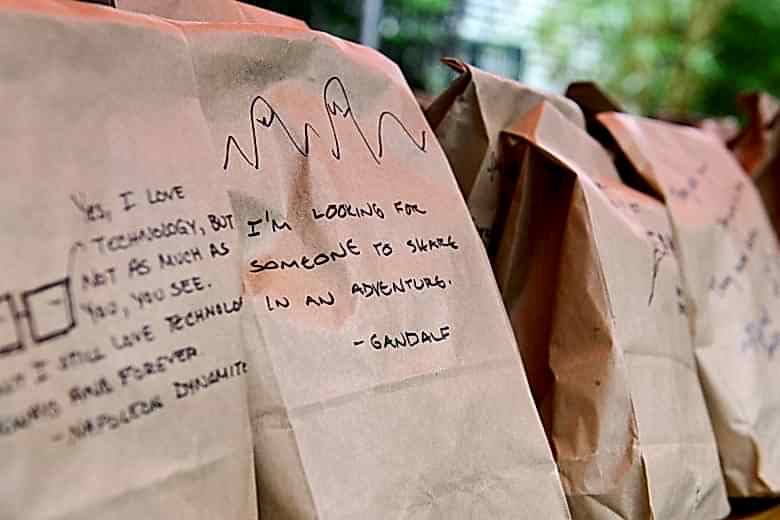 Yes, I LOVE
TECHNOLOGY, BUT
NOT AS MUCH AS
YOU, YOU SEE.
BUT I STILL LOVE TECHNOLO
AND FOREVER.
- NAPOLEON DYNAMITE
I'M LOOKING FOR
SOMEONE TO SHARE
IN AN ADVENTURE.
- GANDALF